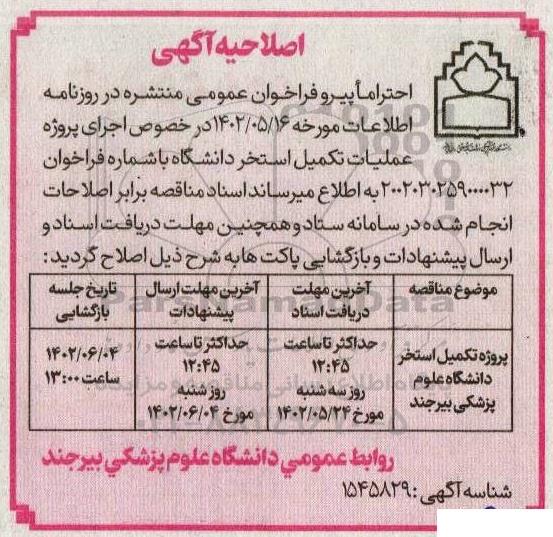 اصلاحیه آگهی
احتراماً پیرو فراخوان عمومی منتشره در روزنامه
اطلاعات مورخه ۱۴۰۲/۰۵/۱۶ در خصوص اجرای پروژه
عملیات تکمیل استخر دانشگاه با شماره فراخوان
۲۰۰۲۰۳۰۲۵۹۰۰۰۰۳۲ به اطلاع میرساند اسناد مناقصه برابر اصلاحات
انجام شده در سامانه ستاد و همچنین مهلت دریافت اسناد و
ارسال پیشنهادات و بازگشایی پاکت ها به شرح ذیل اصلاح گردید:
موضوع مناقصه
آخرین مهلت
دریافت اسناد
آخرین مهلت ارسال
پیشنهادات
تاریخ جلسه
بازگشایی
پروژه تکمیل استخر
دانشگاه علوم
پزشکی بیرجند
حداکثر تا ساعت
۱۲:۴۵
روز سه شنبه
مورخ ۱۴۰۲/۰۵/۲۴
حداکثر تا ساعت
۱۲:۴۵
روز شنبه
مورخ ۱۴۰۲/۰۶/۰۴
۱۴۰۲/۰۶/۰۴
ساعت ۱۳:۰۰
روابط عمومي دانشگاه علوم پزشکي بیرجند
شناسه آگهی: ۱۵۴۵۸۲۹
ParsNamadData